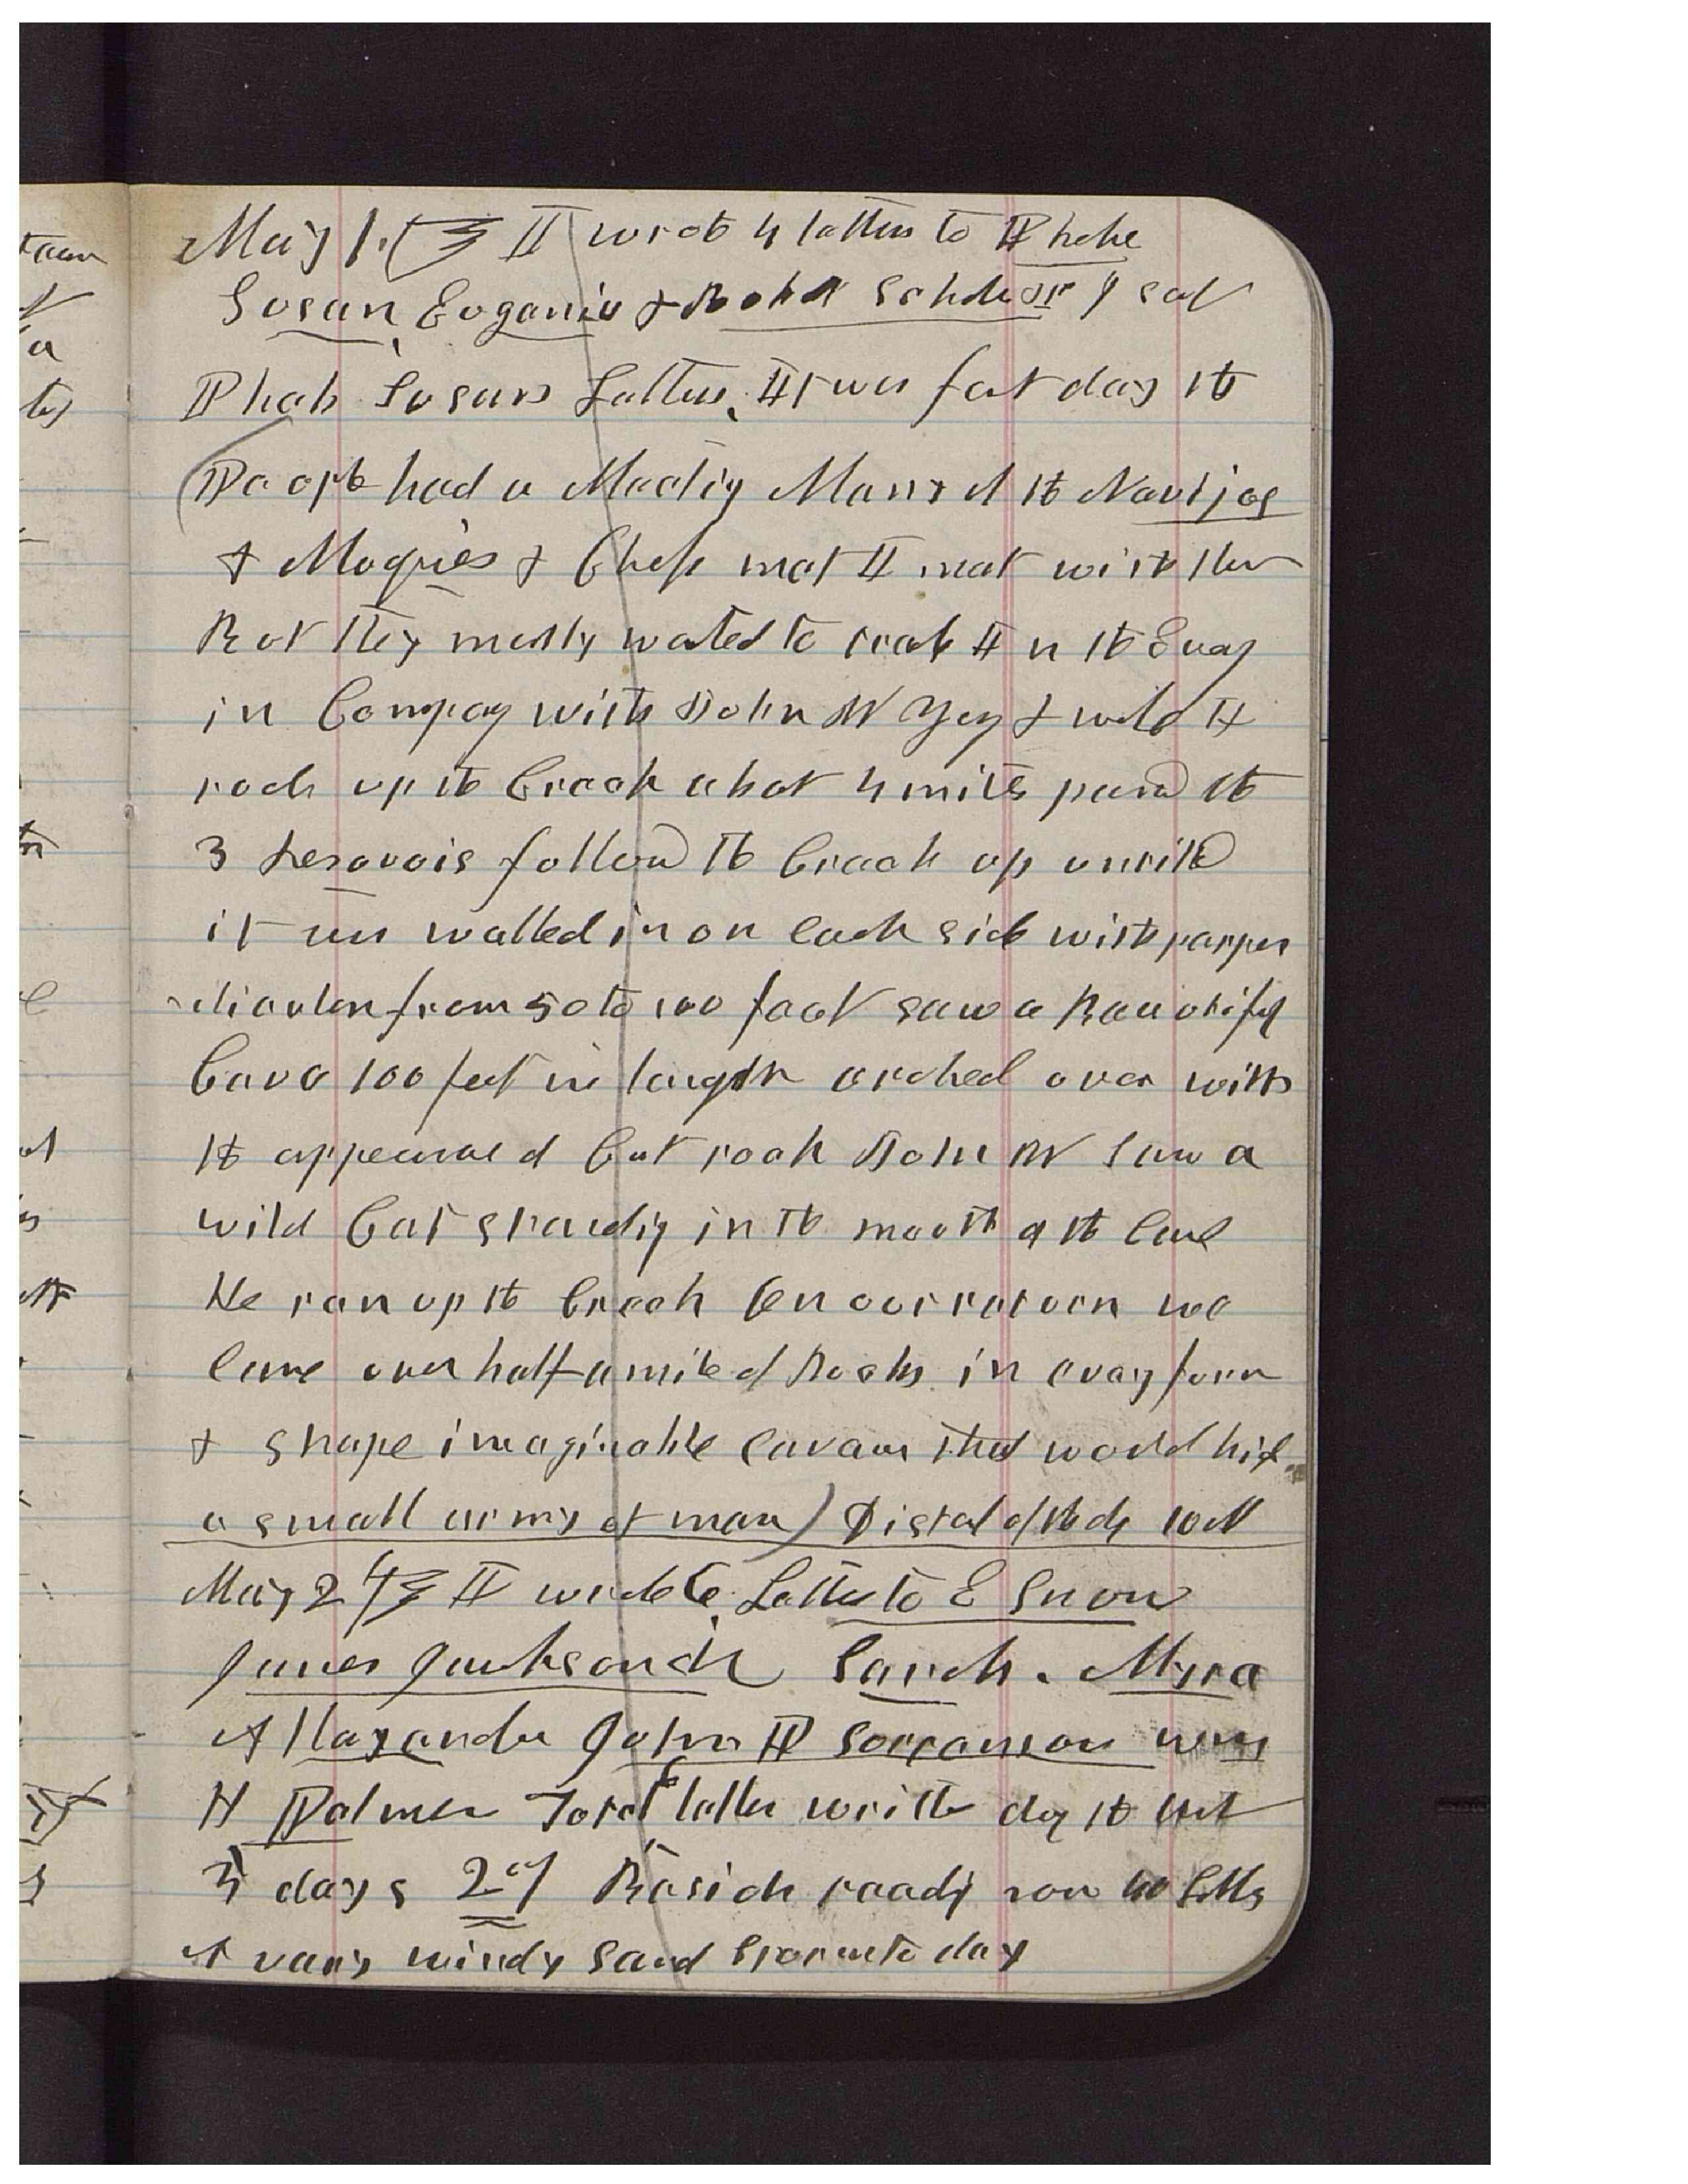 May 1. I wrote 4 letters to Phebe
Susan, Eugenie & Robt Scholes I sat
Phebe Susans Letters. It was fast day the
People had a Meeting Many of the Navijos
& Moquies & Chefs met I met with them
But they mostly wated to trade In the Evening
in Company with John W Young & wife I
rode up the Creek about 4 miles passed the
3 Resovois followed the Creek up untill
it was walled in on each side with
from 50 to 100 feet saw a Beautiful
Cave 100 feet in length arched over with
the appearance of Cut rock John W Saw a
wild Cat standing in the mouth of the Cave
He ran up the Creek On our return we
Came over half a mile of Rocks in evry form
& shape imaginable Cavans that would hide
a small army of men) Distance of the day 10 M
May 2 I wrote 6 Letters to E Snow
James Jackson Jr Sarah. Myra
Allexander John P Sorranson Wm
H Palmer Total letter written duing the last
3 days 27 Beside reading some 40 Letters
A vary windy Sand Storm to day